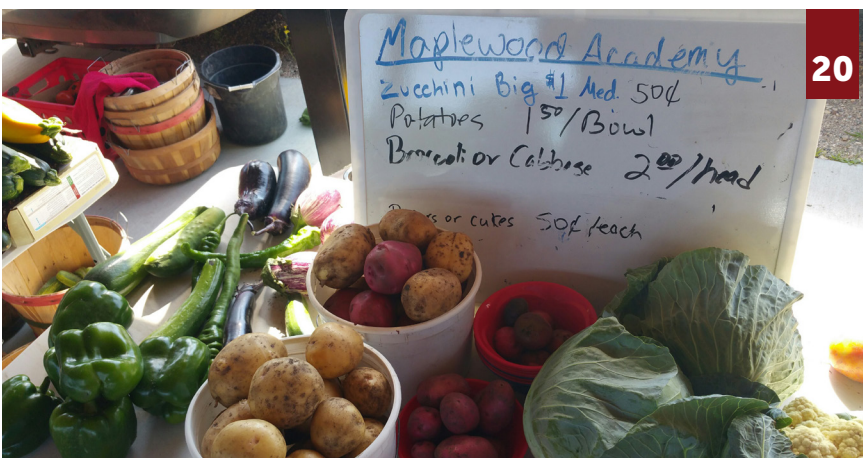 Maplewood Academy
Zucchini Big $1 Med. 50¢
Potatoes 1 50/Bowl
Broccoli or Cabbage 2 00/head
or cukes 50¢/each
20